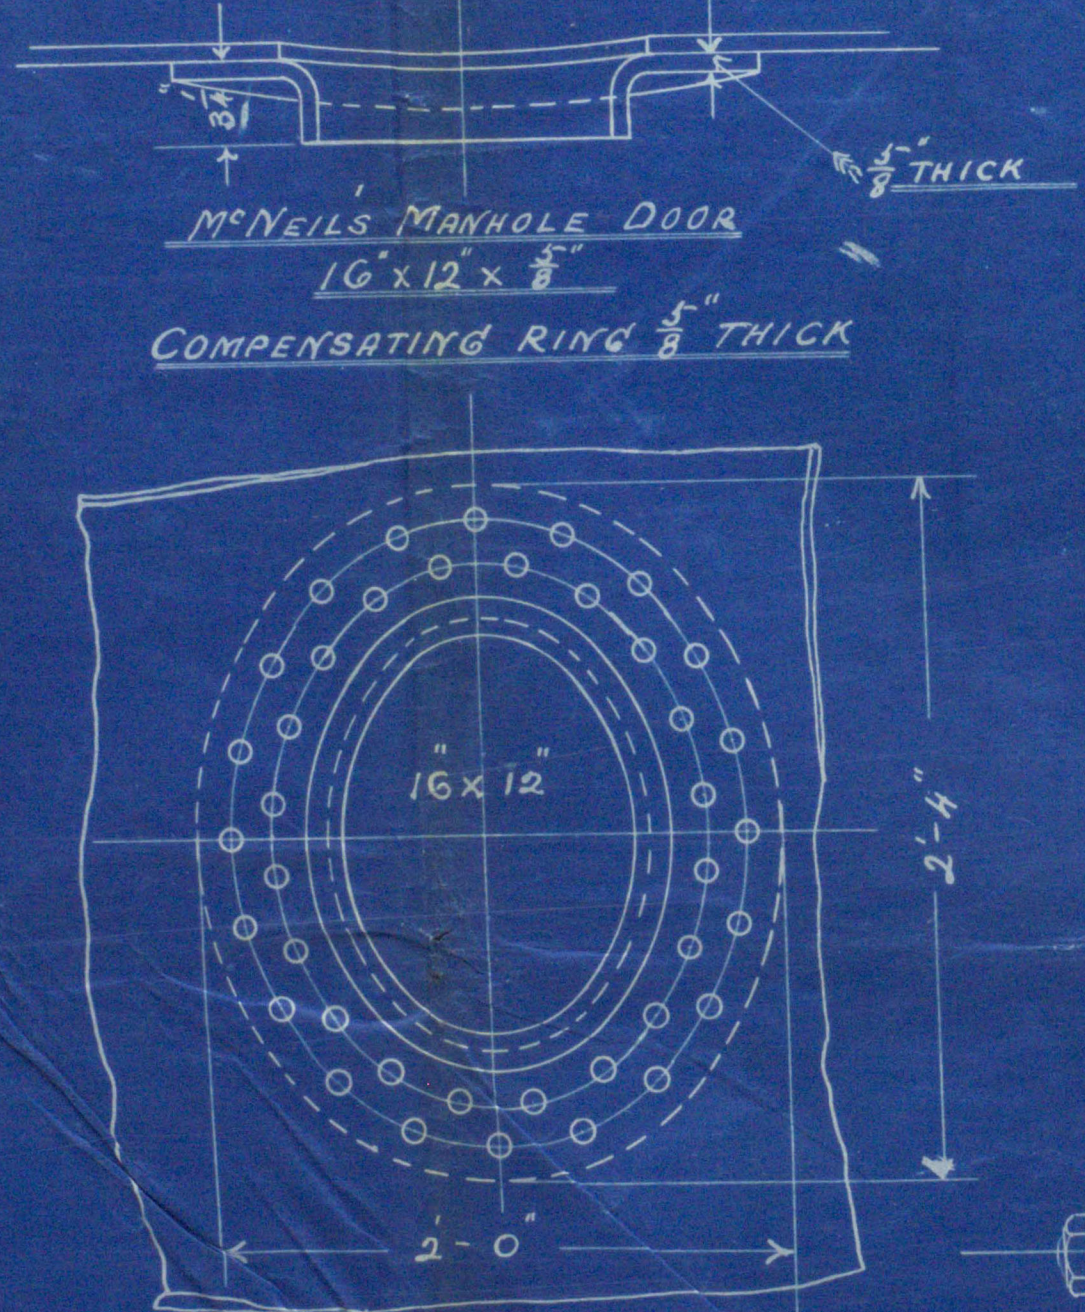 5/8" THICK
McNEIL'S MANHOLE DOOR
16" x 12" x 5/8"
COMPENSATING RING 5/8" THICK
16" x 12"
2'-4"
2'-0"